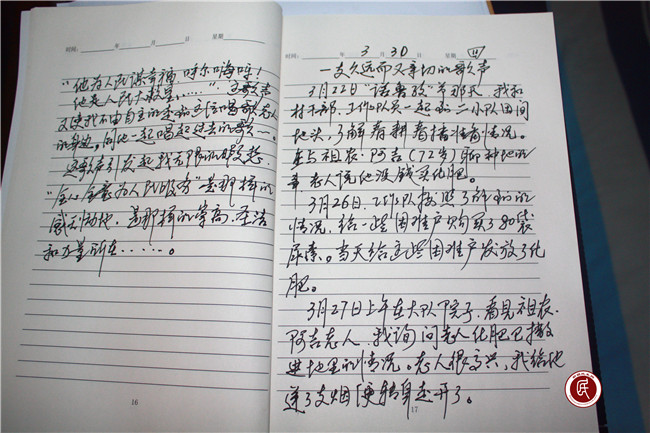 时间： 年 月 日 星期
“他为人民谋幸福呼尔嗨哟！
他是人民大救星……”这歌声
又使我不由自主的走到这位唱歌老人
的身边，同他一起唱起过去的歌—。
这歌声引发起我无限的遐想.
“全心全意为人民服务”是那样的
感天动地，是那样的崇高、圣洁
和力量所在……。
16
时间： 年 3 月 30 日 星期 四
一支久远而又亲切的歌声
3月22日“诺鲁孜”节那天，我和
村干部、工作队员一起在二小队田间
地头，了解春耕春播准备情况。
在与祖农·阿吉（72岁）聊种地的
事老人说他没钱买化肥。
3月26日，工作队按照了解的
情况，给一些困难户购买了80袋
尿素。当天给这些困难户发放了化
肥。
3月27日上午在大队院子，看见祖农·
阿吉老人，我询问老人化肥已撒
进地里的情况。老人很高兴，我给他
递了支烟便转身走开了。
17